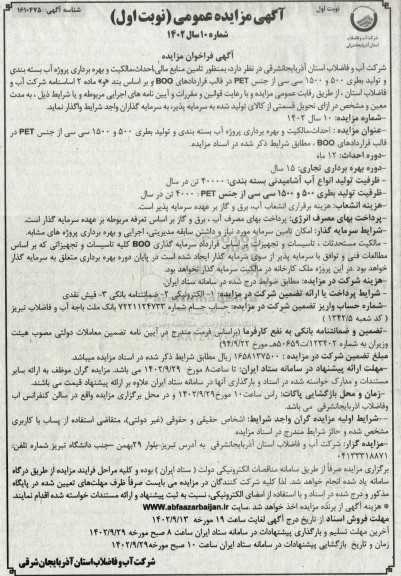 نوبت اول
آگهی مزایده عمومی (نوبت اول)
شماره ۱۰ سال ۱۴۰۲
شناسه آگهی: ۱۶۱۰۴۷۵
شرکت آب و فاضلاب استان آذربایجانشرقی
آگهی فراخوان مزایده
شرکت آب و فاضلاب استان آذربایجانشرقی در نظر دارد، بمنظور تامین منابع مالی،احداث،مالکیت و بهره برداری پروژه آب بسته بندی
و تولید بطری ۵۰۰ و ۱۵۰۰ سی سی از جنس PET در قالب قراردادهای BOO و بر اساس بند «و» ماده ۲ اساسنامه شرکت آب و
فاضلاب استان ، از طریق رقابت عمومی مزایده و با رعایت قوانین و مقررات و آیین نامه های اجرایی مربوطه و با شرایط ذیل ، به مدت
معین و مشخص در ازای تحویل قسمتی از کالای تولید شده به سرمایه پذیر، به سرمایه گذاران واجد شرایط واگذار نماید.
-شماره مزایده: ۱۰ سال ۱۴۰۲
-عنوان مزایده : احداث،مالکیت و بهره برداری پروژه آب بسته بندی و تولید بطری ۵۰۰ و ۱۵۰۰ سی سی از جنس PET در
قالب قراردادهای BOO ، مطابق شرایط ذکر شده در اسناد مزایده.
-دوره احداث: ۱۲ ماه
-دوره بهره برداری تجاری: ۱۵ سال
- ظرفیت تولید انواع آب آشامیدنی بسته بندی: ۴۰۰۰۰ تن در سال
- ظرفیت تولید بطری ۵۰۰ و ۱۵۰۰ سی سی از جنس PET : ۴۰۰۰ تن در سال
-هزینه انشعاب: هزینه برقراری انشعاب آب، برق و گاز بر عهده سرمایه پذیر است.
-پرداخت بهای مصرف انرژی: پرداخت بهای مصرف آب ، برق و گاز بر اساس تعرفه مربوطه بر عهده سرمایه گذار است.
-شرایط سرمایه گذار: امکان تامین سرمایه مورد نیاز و داشتن سابقه مدیریتی، اجرایی و بهره برداری پروژه های مشابه.
- مالکیت مستحدثات ، تاسیسات و تجهیزات: بر اساس قرارداد سرمایه گذاری BOO کلیه تاسیسات و تجهیزاتی که بر اساس
مطالعات فنی و توافق با سرمایه پذیر از سوی سرمایه گذار ایجاد شده است در پایان دوره بهره برداری متعلق به سرمایه گذار
خواهد بود. در این پروژه ملک کارخانه در مالکیت سرمایه گذار نخواهد بود.
-هزینه شرکت در مزایده: مطابق ضوابط درج شده در سامانه ستاد ایران.
- شرایط پرداخت یا ارائه تضمین شرکت در مزایده: ۱- الکترونیکی ۲- ضمانتنامه بانکی ۳- فیش نقدی
-شماره حساب واریز تضمین شرکت در مزایده: حساب جام شماره ۷۲۲۱۱۲۴۷۳۳ بانک ملت باجه آب و فاضلاب تبریز
( کد شعبه ۱۳۴۲/۵ )
-تضمین و ضمانتنامه بانکی به نفع کارفرما (براساس فرمت مندرج در آیین نامه تضمین معاملات دولتی مصوب هیئت
وزیران به شماره ۱۲۳۴۰۲/ت۵۰۶۵۹هـ مورخ ۹۴/۹/۲۲)
مبلغ تضمین شرکت در مزایده : ۱۶۵۸۱۳۷۵۰۰ ریال مطابق شرایط ذکر شده در اسناد مزایده میباشد.
-مهلت ارائه پیشنهاد در سامانه ستاد ایران: تا ساعت۸ مورخ ۱۴۰۲/۹/۲۹ می باشد. مزایده گران موظف به ارائه سایر
مستندات و مدارک خواسته شده در اسناد و بارگذاری آنها در سامانه ستاد ایران علاوه بر ارائه پیشنهاد قیمت می باشند.
-زمان و محل بازگشایی پاکات: راس ساعت ۱۰ مورخ۱۴۰۲/۹/۲۹ و در محل برگزاری مزایده واقع در سالن کنفرانس آب
وفاضلاب آذربایجانشرقی می باشد.
--شرایط اولیه مزایده گران واجد شرایط: اشخاص حقیقی و حقوقی (غیر دولتی)، متقاضی استفاده از پساب با کاربری
مشخص شده و حائز شرایط مندرج در اسناد مزایده
-مزایده گزار: شرکت آب و فاضلاب استان آذربایجانشرقی به آدرس تبریز-بلوار ۲۹بهمن –جنب دانشگاه تبریز شماره تلفن:
۰۴۱۳۳۳۱۸۸۷۱
برگزاری مزایده صرفاً از طریق سامانه مناقصات الکترونیکی دولت ( ستاد ایران ) بوده و کلیه مراحل فرایند مزایده از طریق درگاه
سامانه یاد شده انجام خواهد شد. لذا کلیه شرکت کنندگان در مزایده می بایست صرفاً ظرف مهلت‌های تعیین شده در پایگاه
مذکور و درج شده در اسناد و با استفاده از امضای الکترونیکی، نسبت به ثبت پیشنهاد و ارائه مستندات خواسته شده اقدام نمایند.
* هزینه آگهی از برنده مزایده اخذ خواهد شد .سایت WWW.abfaazarbaijan.ir
مهلت فروش اسناد از تاریخ درج آگهی لغایت ساعت ۱۹ مورخه ۱۴۰۲/۹/۱۳
آخرین مهلت تسلیم و بارگذاری پیشنهادات در سامانه ستاد ایران ساعت ۸ صبح مورخه ۱۴۰۲/۹/۲۹
زمان و تاریخ بازگشایی پیشنهادات در سامانه ستاد ایران ساعت ۱۰ صبح مورخه۱۴۰۲/۹/۲۹
شرکت آب و فاضلاب استان آذربایجان شرقی